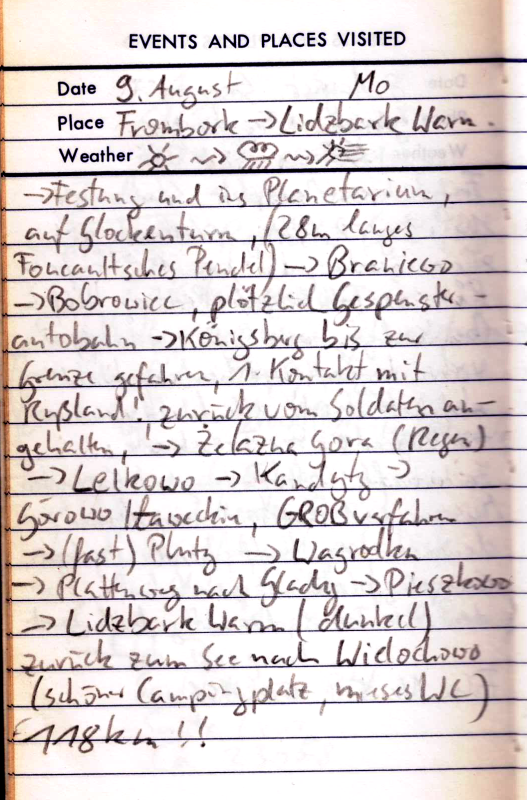 EVENTS AND PLACES VISITED
Date 9. August Mo
Place Frombork → Lidzbark Warm.
Weather
→ Festung und ins Planetarium,
auf Glockenturm, (28m langes
Foucaultsches Pendel) → Braniewo
→ Bobrowiec, plötzlich Gespenster-
autobahn → Königsburg bis zur
Grenze gefahren, 1. Kontakt mit
Rußland!, zurück vom Soldaten an-
gehalten, → Żelazna Gora (Regen)
→ Lelkowo → Kandyty →
Górowo Iławeckie, GROß verfahren
→ (fast) Pluty → Wagrodken
→ Plattenweg nach Glady → Pieszkowo
→ Lidzbark Warm (dunkel)
zurück zum See nach Wielochowo
(schöner Campingplatz, mieses WC)
118km!!